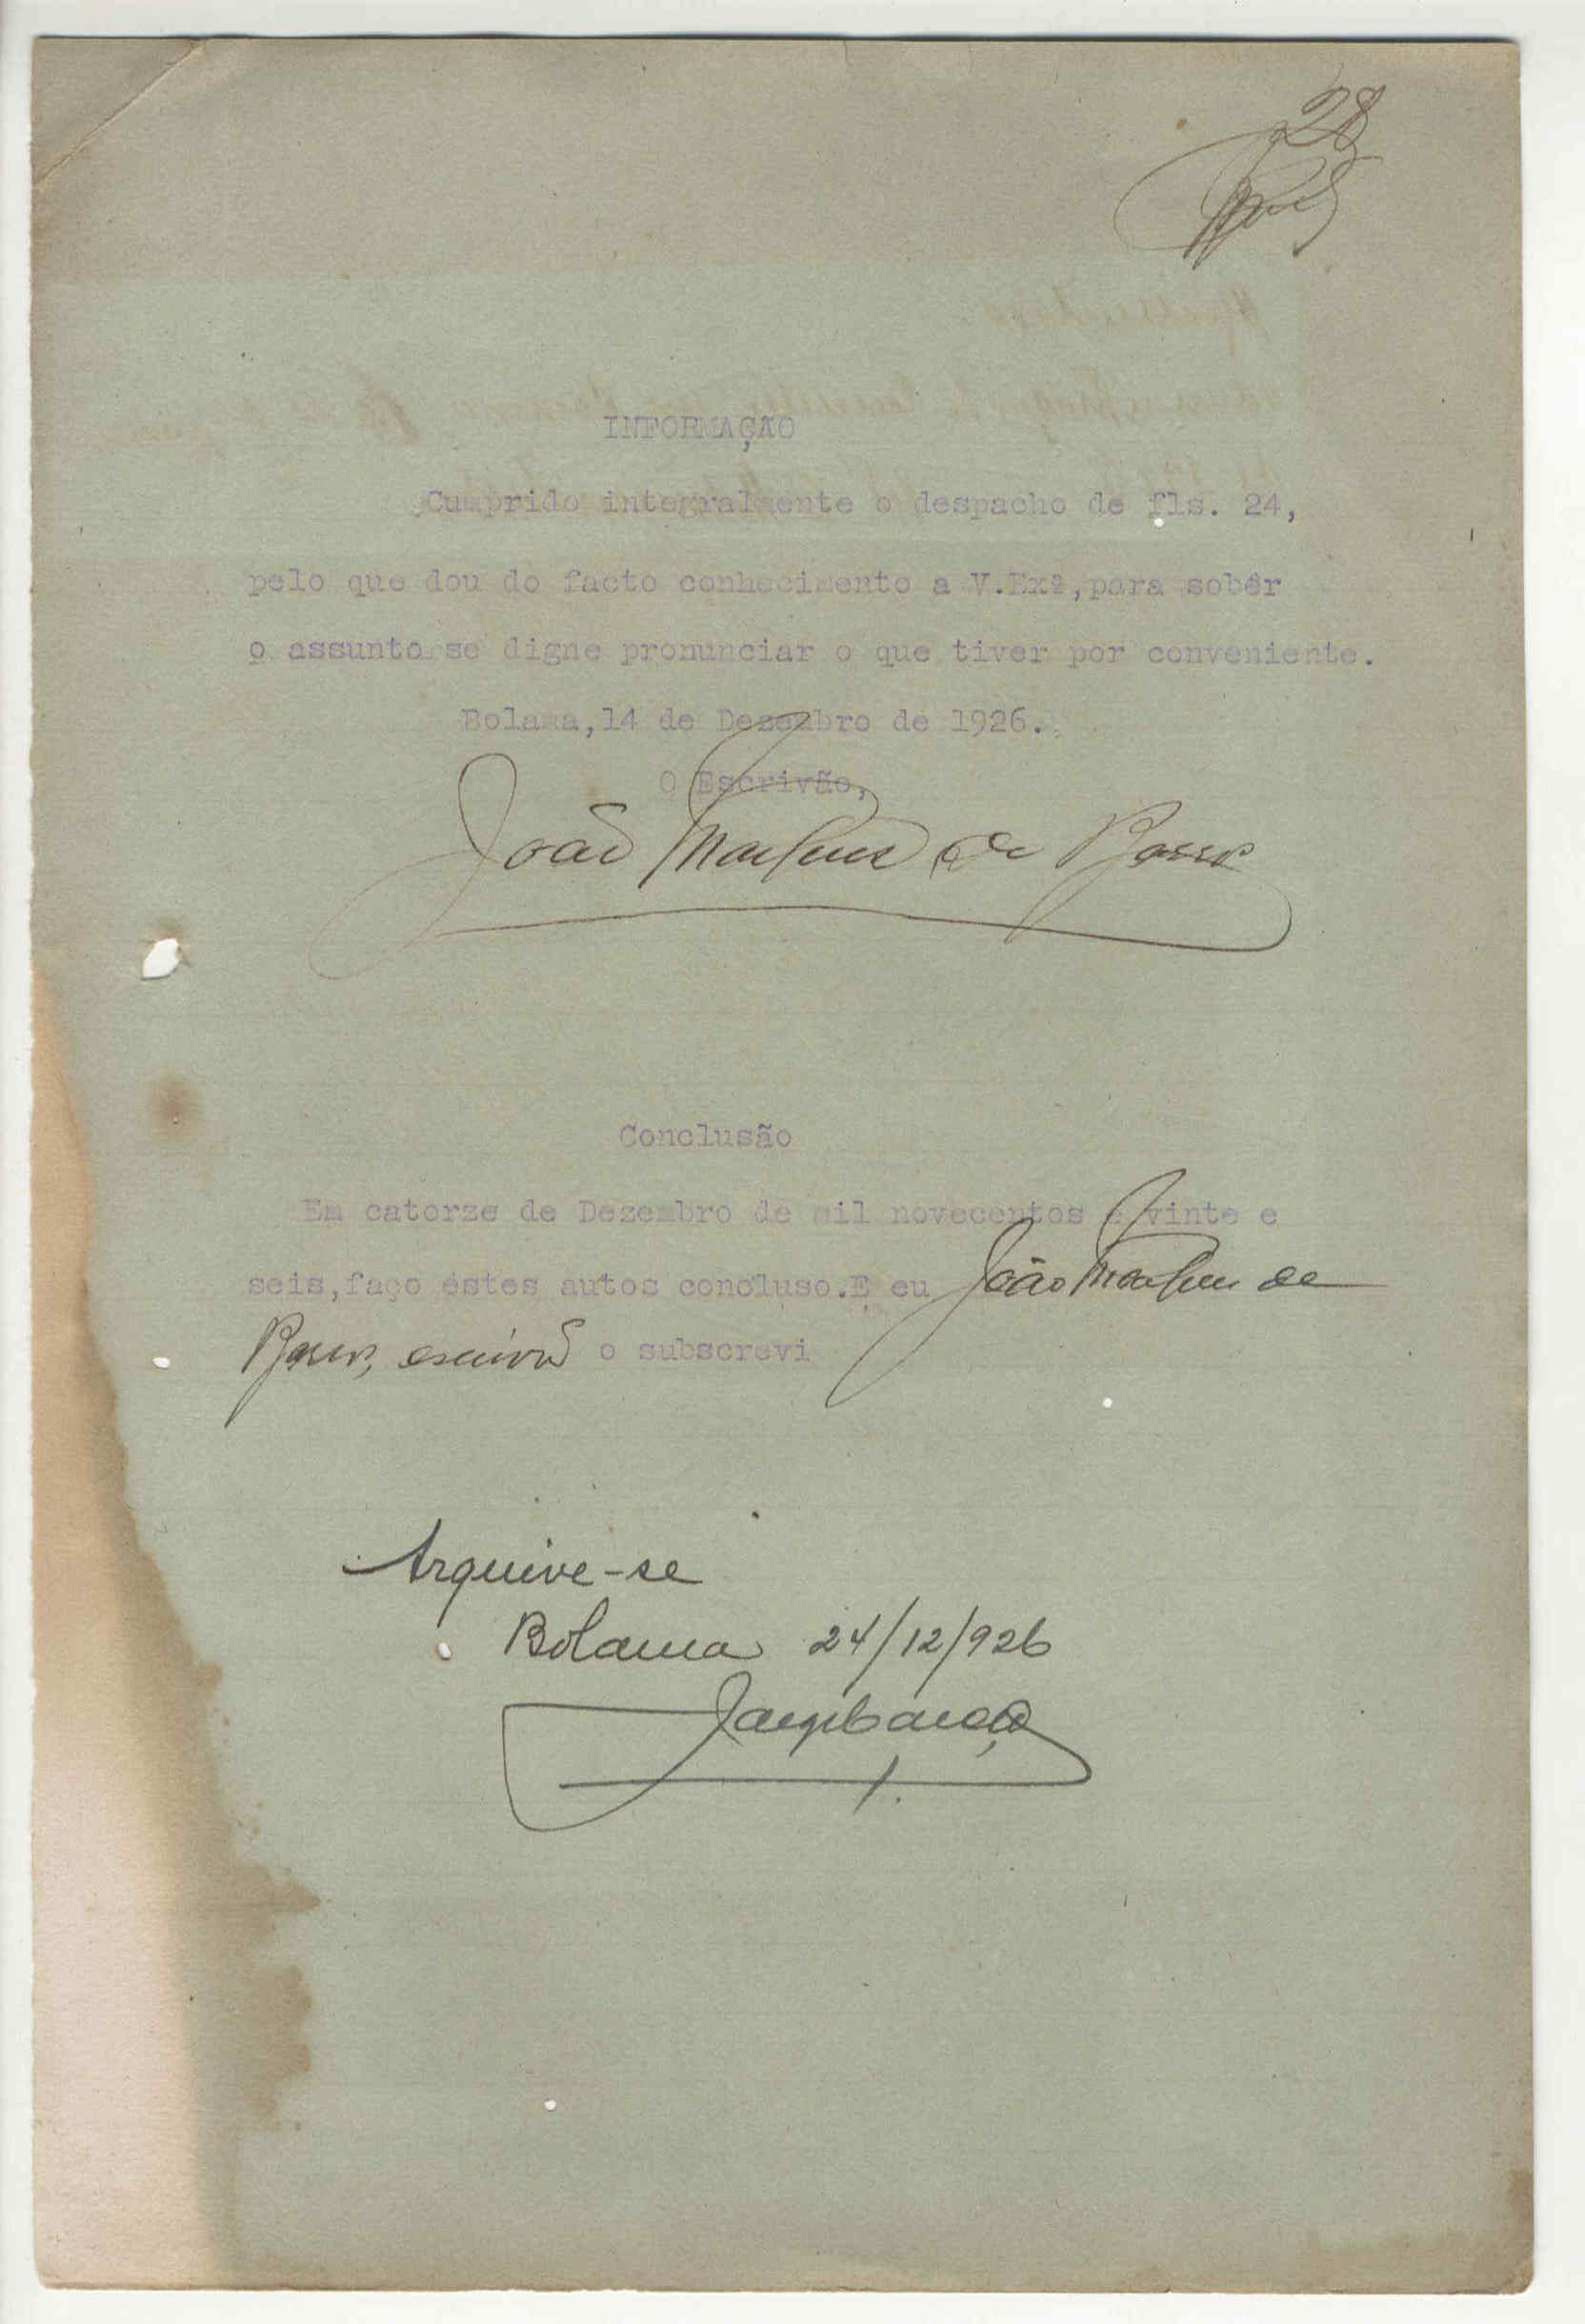 28
INFORMAÇÃO
Cumprido integralmente o despacho de fls. 24,
pelo que dou do facto conhecimento a V.Exª, para sobêr
o assunto se digne pronunciar o que tiver por conveniente.
Bolama, 14 de Dezembro de 1926.
O Escrivão,
João Martins de Barros
Conclusão
Em catorze de Dezembro de mil novecentos e vinte e
seis, faço éstes autos concluso. E eu João Martins de
Barros, escrivão o subscrevi
Arquive-se
Bolama 24/12/926